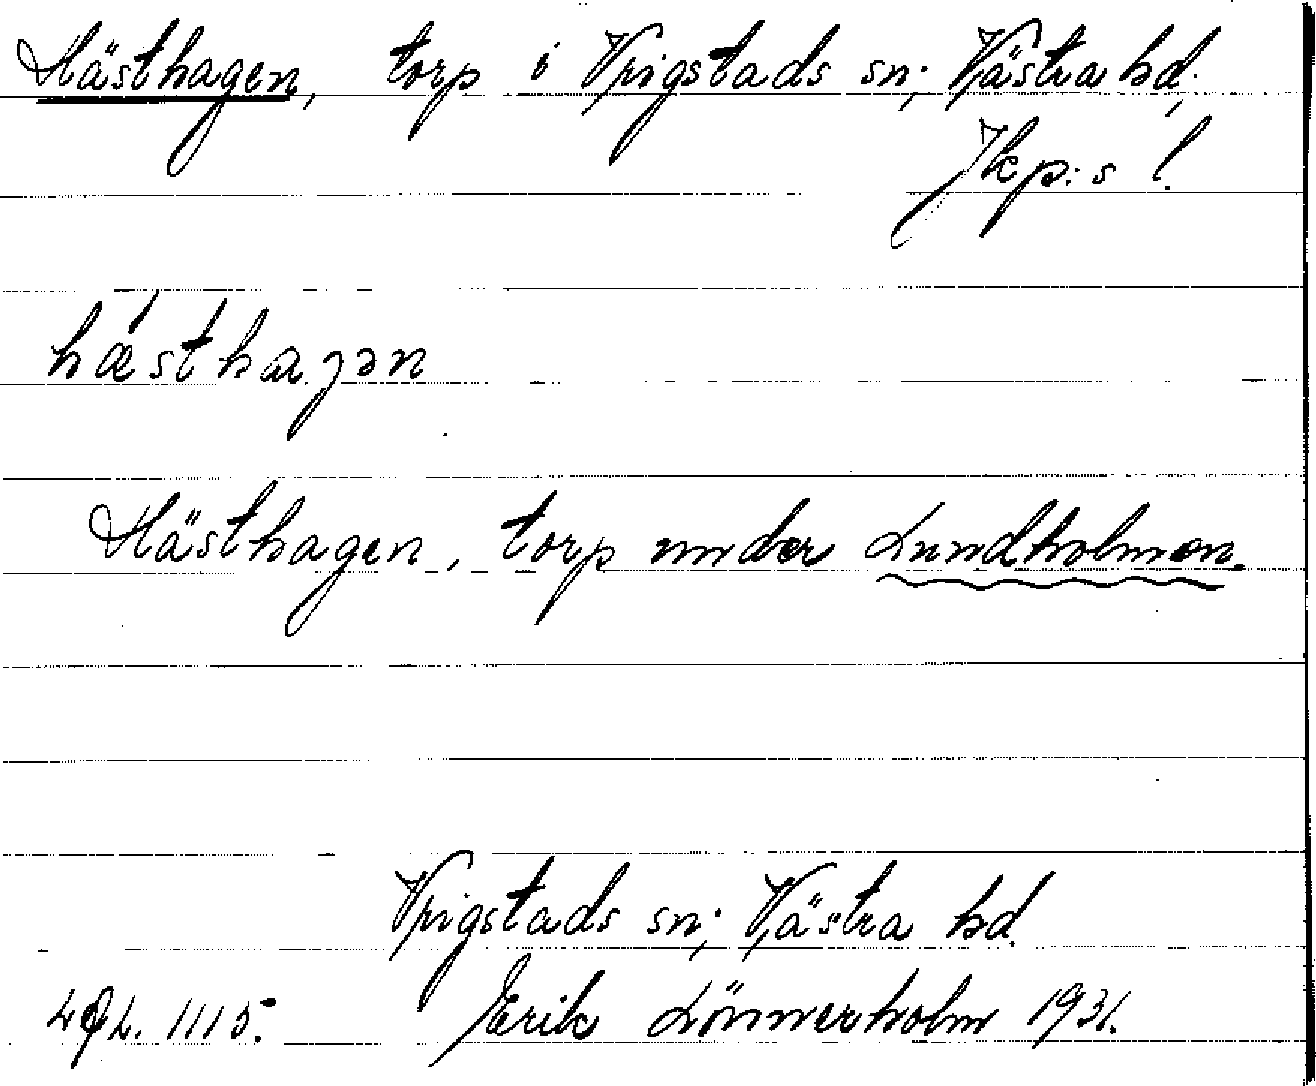 Hästhagen, torp i Vrigstads sn; Västra hd,
Jkp:s l.
hæsthaʒən
Hästhagen, torp under Lundholmen.
Vrigstads sn; Västra hd.
1115. Erik Lönnerholm 1931.